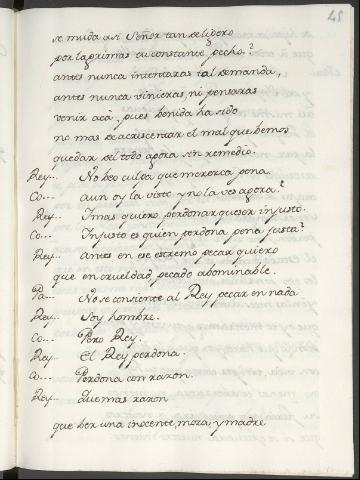 48
se muda asi Señor tan deligero
por lagrimas tu constante pecho?
antes nunca intentaras tal demanda,
antes nunca vinieras, ni pensaras
venir acà, pues benida ha sido
no mas de acrescentar el mal que hemos
quedar del todo agora sin remedio.
Rey... No beo culpa que merezca pena.
Co... aun oy la viste y no la ves agora?
Rey... I mas quiero perdonar que ser injusto.
Co... Injusto es quien perdona pena justa?
Rey... Antes en ese estremo pecar quiero
que en crueldad, pecado abominable.
Pa... No se consiente al Rey pecar en nada
Rey... Soy hombre.
Co... Pero Rey.
Rey... El Rey perdona.
Co... Perdona con razon.
Rey... Que mas razon
que ber una inocente, moza, y madre